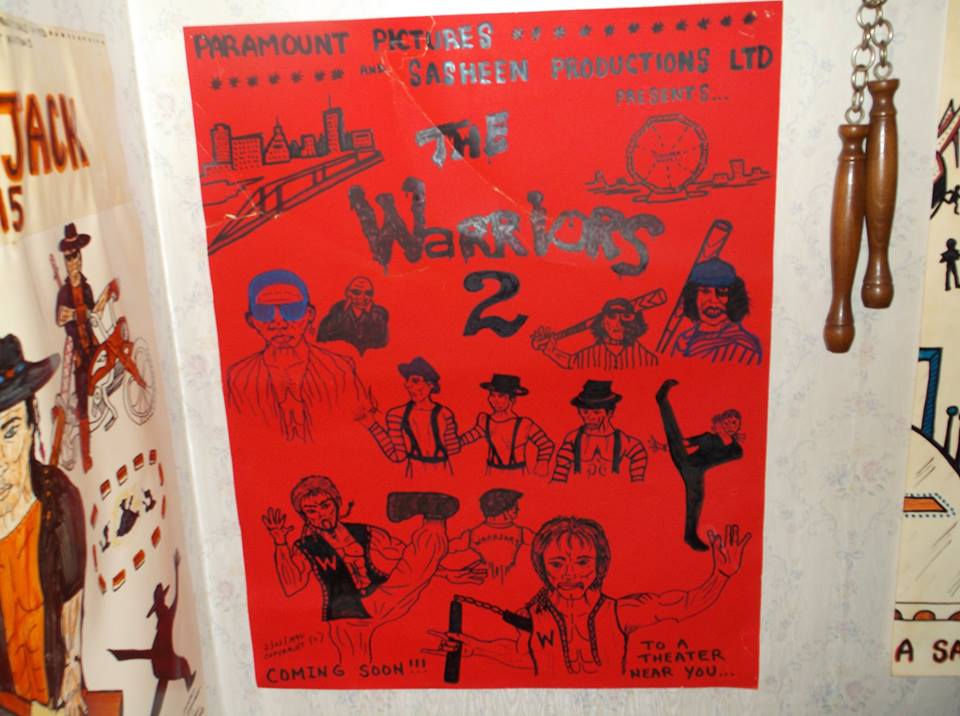 JACK
15
PARAMOUNT PICTURES
AND SASHEEN PRODUCTIONS LTD
PRESENTS...
THE
WARRIORS
2
WARRIORS
W
W
COPYRIGHT (C)
COMING SOON!!!
TO A
THEATER
NEAR YOU...
A SA